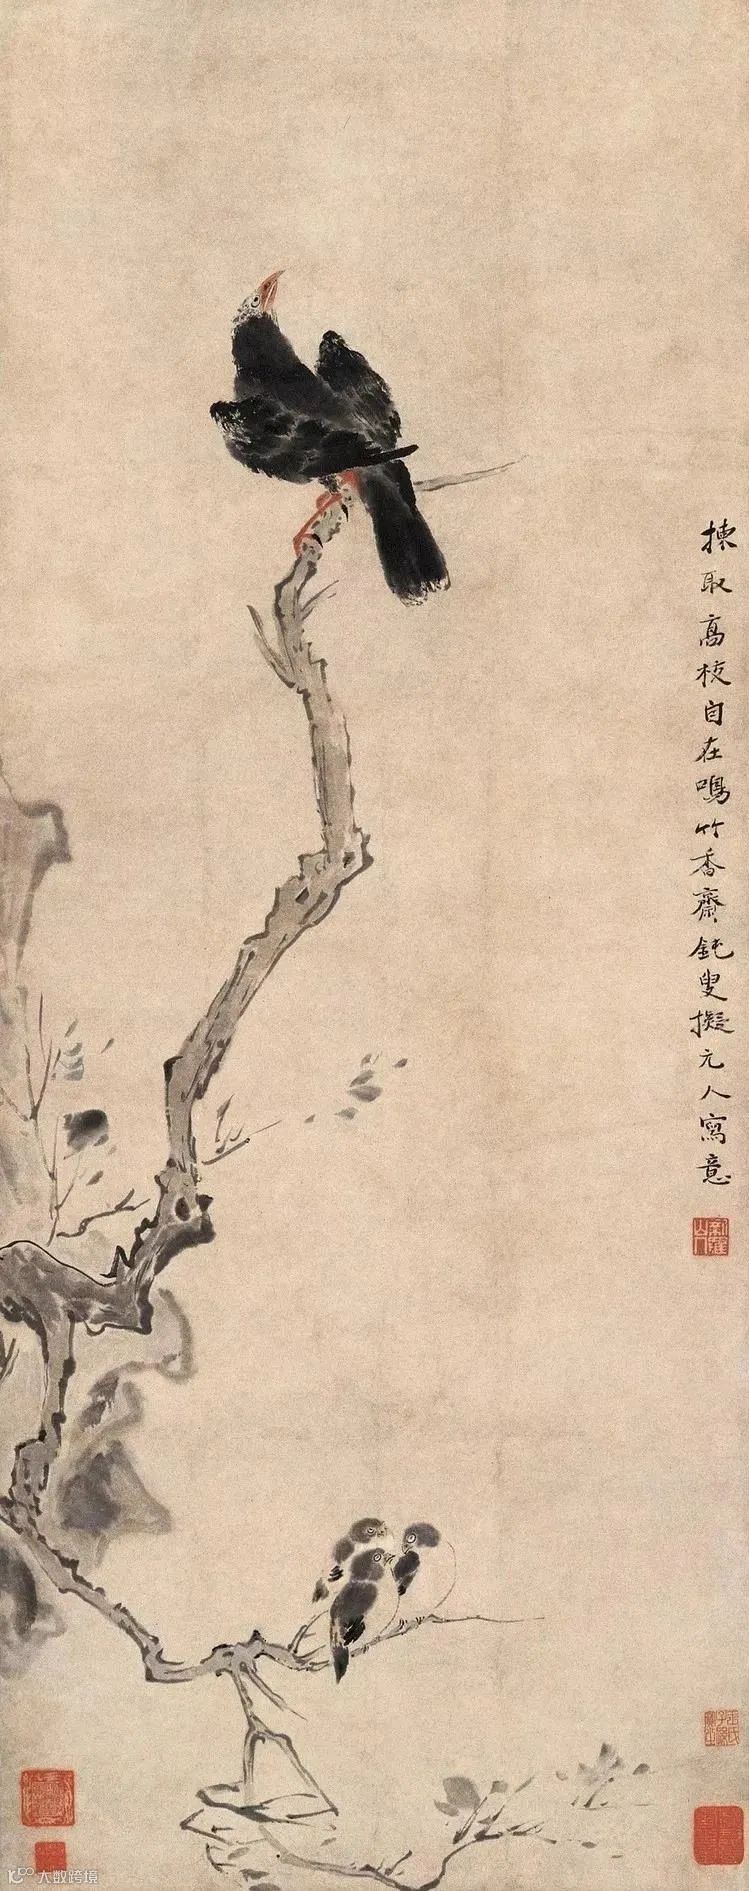 揀取高枝自在鳴竹香齋鈍叟擬元人寫意
新羅山人
大数跨境